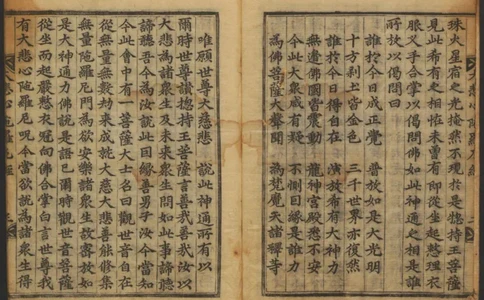 珠火星宿之光掩然不現於是捴持王菩薩
見此希有之相怪未曾有即從座起整理衣
服叉手合掌以偈問佛如此神通之相是誰
所放以偈問曰
誰於今日成正覺 普放如是大光明
十方刹土皆金色 三千世界亦復然
誰於今日得自在 演放希有大神力
無邊佛國皆震動 龍神宮殿悉不安
今此大衆咸有疑 不測因緣是誰力
為佛菩薩大聲聞 為梵魔天諸釋等
唯願世尊大慈悲 說此神通所有以
爾時世尊讃捴持王菩薩言善哉善哉汝以
大悲為諸衆生及未來衆生問如此事諦聽
諦聽吾今為汝說此因緣善男子汝今當知
今此會中有一菩薩大士名曰觀世音自在
從無量無數劫來成就大慈大悲善能修集
無量陀羅尼門為欲安樂諸衆生故密放如
是大神通力佛說是語已爾時觀世音菩薩
從坐而起嚴整衣冠向佛合掌白言世尊我
有大悲心陀羅尼呪今當欲說為諸衆生得